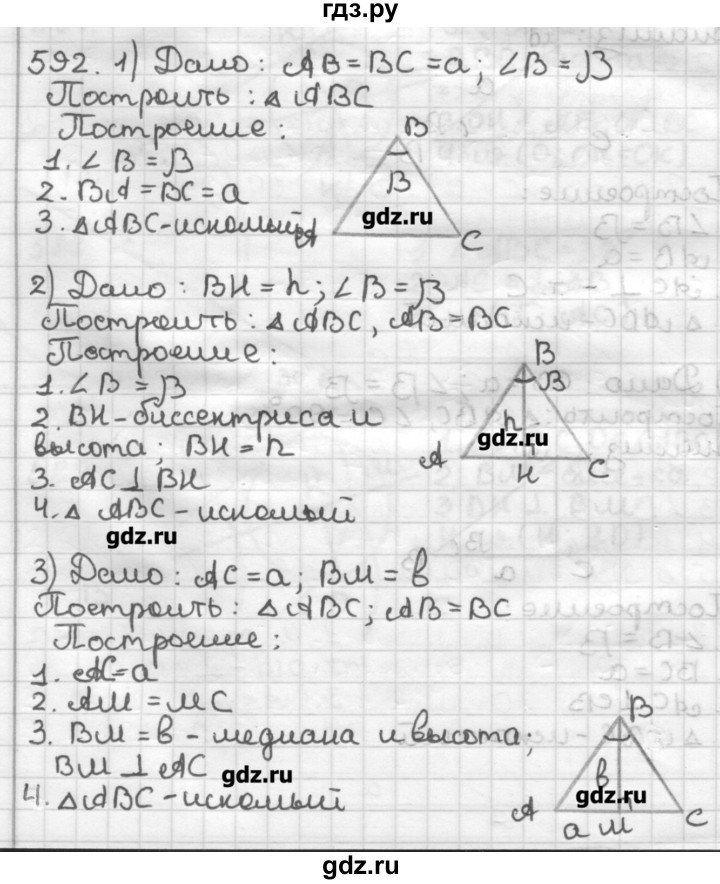 гдз.ру
592. 1) Дано: AB = BC = a; ∠B = β
Построить: △ABC
Построение:
1. ∠B = β
2. BA = BC = a
3. △ABC - искомый
B
β
gdz.ru
A
C
2) Дано: BH = h; ∠B = β
Построить: △ABC, AB = BC
Построение:
1. ∠B = β
2. BH - биссектриса и
высота; BH = h
3. AC ⊥ BH
4. △ ABC - искомый
B
β
h
gdz.ru
A
H
C
gdz.ru
3) Дано: AC = a; BM = в
Построить: △ABC; AB = BC
Построение:
1. AC = a
2. AM = MC
3. BM = в - медиана и высота;
BM ⊥ AC
gdz.ru
4. △ABC - искомый
B
в
gdz.ru
A
a M
C
gdz.ru